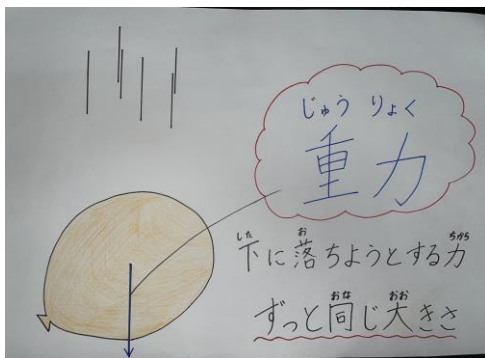 じゅう りょく
重力
した お ちから
下に落ちようとする力
おな おお
ずっと同じ大きさ